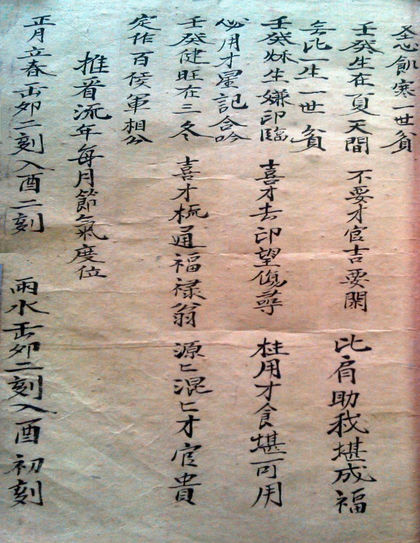 飢寒一世貧
壬癸生在夏天間 不要才官吉要閑 比肩助我堪成福
無比一生一世貧
壬癸妹生嫌印臨 喜才去印望尋 柱用才食堪可用
必用才星記合吟
壬癸健旺在三冬 喜才梳通福禄翁 源匕混匕才官貴
定作百侯軍相公
推音流年每月節氣度位
正月立春出卯二刻入酉二刻 雨水出卯二刻入酉初刻